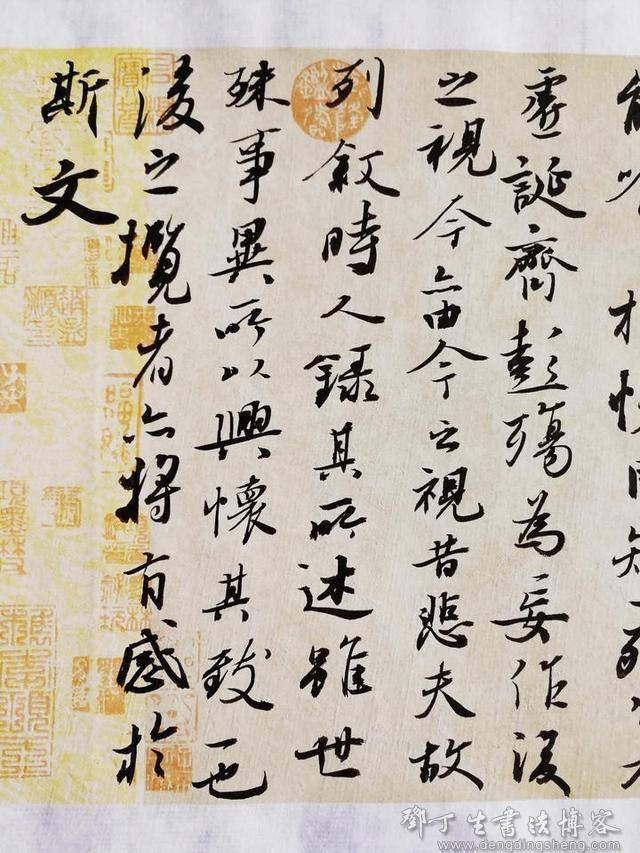 虛誕齊彭殤為妄作後
之視今亦由今之視昔悲夫故
列敘時人錄其所述雖世
殊事異所以興懷其致一也
後之攬者亦將有感於
斯文
鄧丁生書法博客
www.dengdingsheng.com